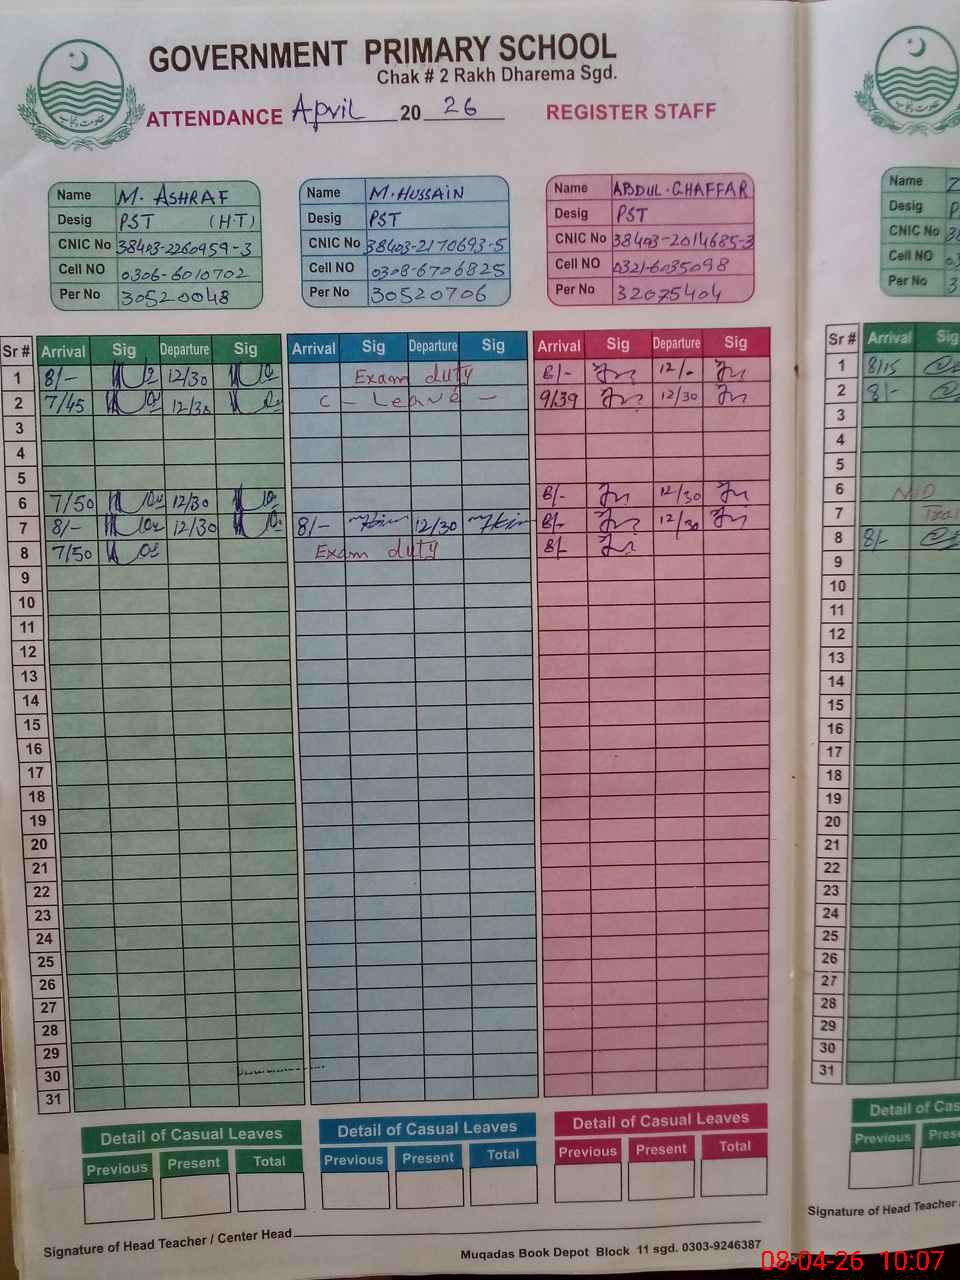 GOVERNMENT PRIMARY SCHOOL
Chak # 2 Rakh Dharema Sgd.
ATTENDANCE April 20 26 REGISTER STAFF
Name M. ASHRAF
Desig PST (H.T)
CNIC No 38403-2260959-3
Cell NO 0306-6010702
Per No 30520048
Name M. HUSSAIN
Desig PST
CNIC No 38403-2170693-5
Cell NO 0308-6706825
Per No 30520706
Name ABDUL. GHAFFAR
Desig PST
CNIC No 38403-2014685-3
Cell NO 0321-6035098
Per No 32075404
Name
Desig
CNIC No
Cell NO
Per No
Sr # Arrival Sig Departure Sig Arrival Sig Departure Sig Arrival Sig Departure Sig
1 8/- 12/30 Exam duty 8/- 12/-
2 7/45 12/30 C - Leave - 9/39 12/30
3
4
5
6 7/50 12/30 8/- 12/30
7 8/- 12/30 8/- 12/30 8/- 12/30
8 7/50 Exam duty 8/-
9
10
11
12
13
14
15
16
17
18
19
20
21
22
23
24
25
26
27
28
29
30
31
Sr # Arrival Sig
1 8/15
2 8/-
3
4
5
6
7
8 8/-
9
10
11
12
13
14
15
16
17
18
19
20
21
22
23
24
25
26
27
28
29
30
31
Detail of Casual Leaves
Previous Present Total
Detail of Casual Leaves
Previous Present Total
Detail of Casual Leaves
Previous Present Total
Detail of Cas
Previous Prese
Signature of Head Teacher / Center Head
Muqadas Book Depot Block 11 sgd. 0303-9246387
Signature of Head Teacher
08-04-26 10:07